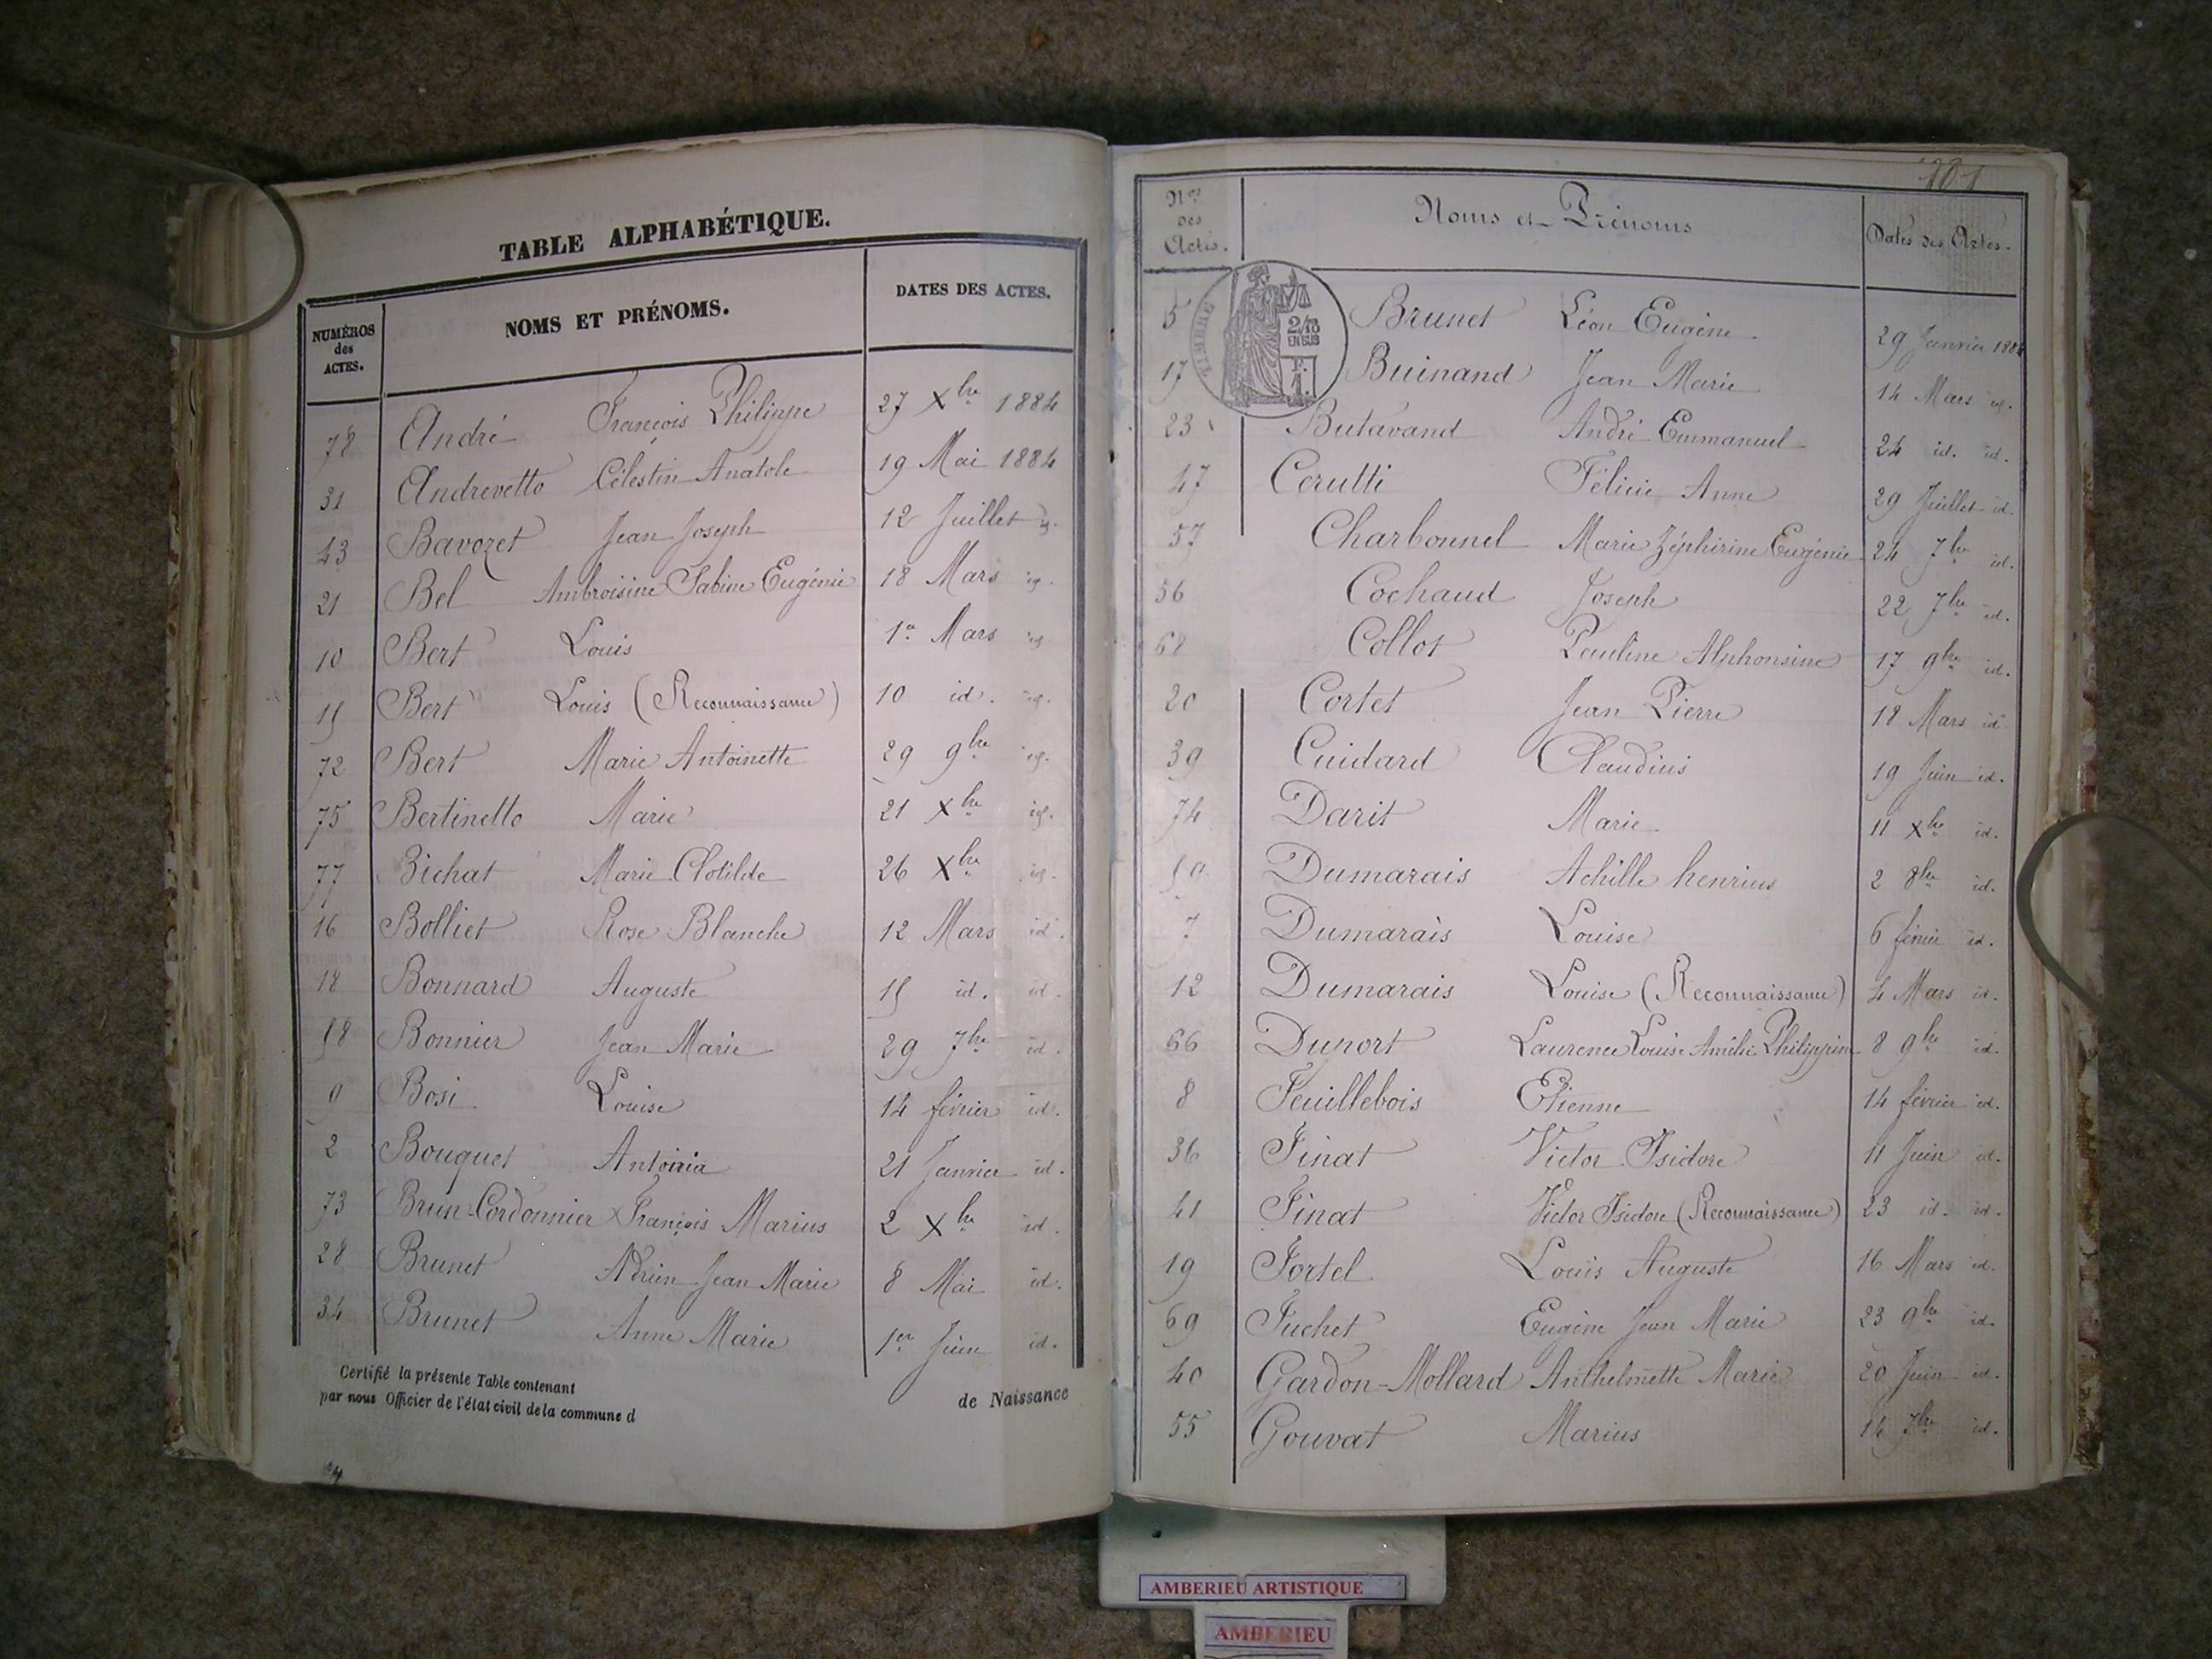 TABLE ALPHABÉTIQUE.
NUMÉROS des ACTES. NOMS ET PRÉNOMS. DATES DES ACTES.
78 André François Philippe 27 Xbre 1884
31 Andrevetto Célestin Anatole 19 Mai 1884
43 Bavozet Jean Joseph 12 Juillet id.
21 Bel Ambroisine Sabine Eugénie 18 Mars id.
10 Bert Louis 1er Mars id.
15 Bert Louis (Reconnaissance) 10 id. id.
72 Bert Marie Antoinette 29 9bre id.
75 Bertinetto Marie 21 Xbre id.
77 Bichat Marie Clotilde 26 Xbre id.
16 Bolliet Rose Blanche 12 Mars id.
18 Bonnard Auguste 15 id. id.
58 Bonnier Jean Marie 29 7bre id.
9 Bosi Louise 14 février id.
2 Bouquet Antoinia 21 Janvier id.
73 Brun-Cordonnier François Marius 2 Xbre id.
28 Brunet Adrien Jean Marie 8 Mai id.
34 Brunet Anne Marie 1er Juin id.
Certifié la présente Table contenant de Naissance
par nous Officier de l'état civil de la commune d
101
Nos des Actes. Noms et Prénoms Dates des Actes.
TIMBRE 2/10 EN SUS
5 Brunet Léon Eugène 29 Janvier 1884
17 Buinand Jean Marie 14 Mars id.
23 Butavand André Emmanuel 24 id. id.
47 Cerutti Félicie Anne 29 Juillet id.
57 Charbonnel Marie Zéphirine Eugénie 24 7bre id.
56 Cochaud Joseph 22 7bre id.
68 Collot Pauline Alphonsine 17 9bre id.
20 Cortet Jean Pierre 18 Mars id.
39 Cuidard Claudius 19 Juin id.
74 Darit Marie 11 Xbre id.
59 Dumarais Achille henrius 2 8bre id.
7 Dumarais Louise 6 février id.
12 Dumarais Louise (Reconnaissance) 4 Mars id.
66 Duport Laurence Louise Amélie Philippine 8 9bre id.
8 Feuillebois Etienne 14 février id.
36 Finat Victor Isidore 11 Juin id.
41 Finat Victor Isidore (Reconnaissance) 23 id. id.
19 Fortel Louis Auguste 16 Mars id.
69 Fuchet Eugène Jean Marie 23 9bre id.
40 Gardon-Mollard Anthelmette Marie 20 Juin id.
55 Gouvat Marius 14 7bre id.
AMBERIEU ARTISTIQUE
AMBERIEU